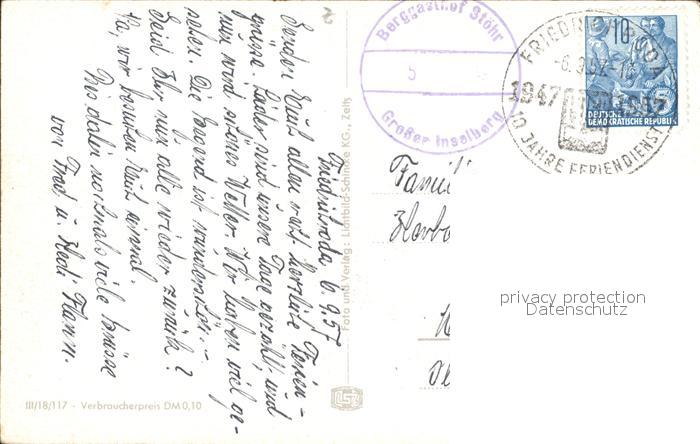 Friedrichroda, 6.9.57
Senden Euch allen recht herzliche Ferien-
grüsse. Leider sind unsere Tage gezählt und
nun wird schönes Wetter. Wir haben viel ge-
sehen. Die Gegend ist wunderschön.
Seid Ihr nun alle wieder zurück?
Ja, wir besuchen Euch einmal.
Bis dahin nochmals viele Grüsse
von Fred u. Hedi
Foto und Verlag: Lichtbild-Schincke KG., Zeitz
III/18/117 - Verbraucherpreis DM 0,10
Berggasthof Stöhr
5
Großer Inselberg
FRIEDRICHRODA
-6.9.57-
1947 1957
10 JAHRE FERIENDIENST
10
DEUTSCHE
DEMOKRATISCHE REPUBLIK
Famili
privacy protection
Datenschutz